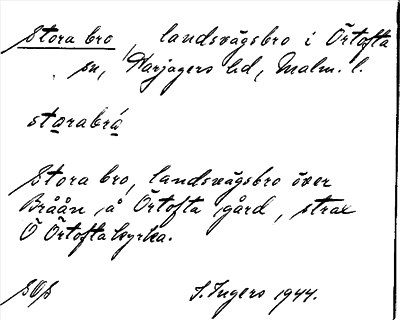 Stora bro, landsvägsbro i Örtofta
sn, Harjagers hd, Malm. l.
storabrå
Stora bro, landsvägsbro över
Bråån å Örtofta gård, strax
Ö Örtofta kyrka.
S. Ingers 1944.